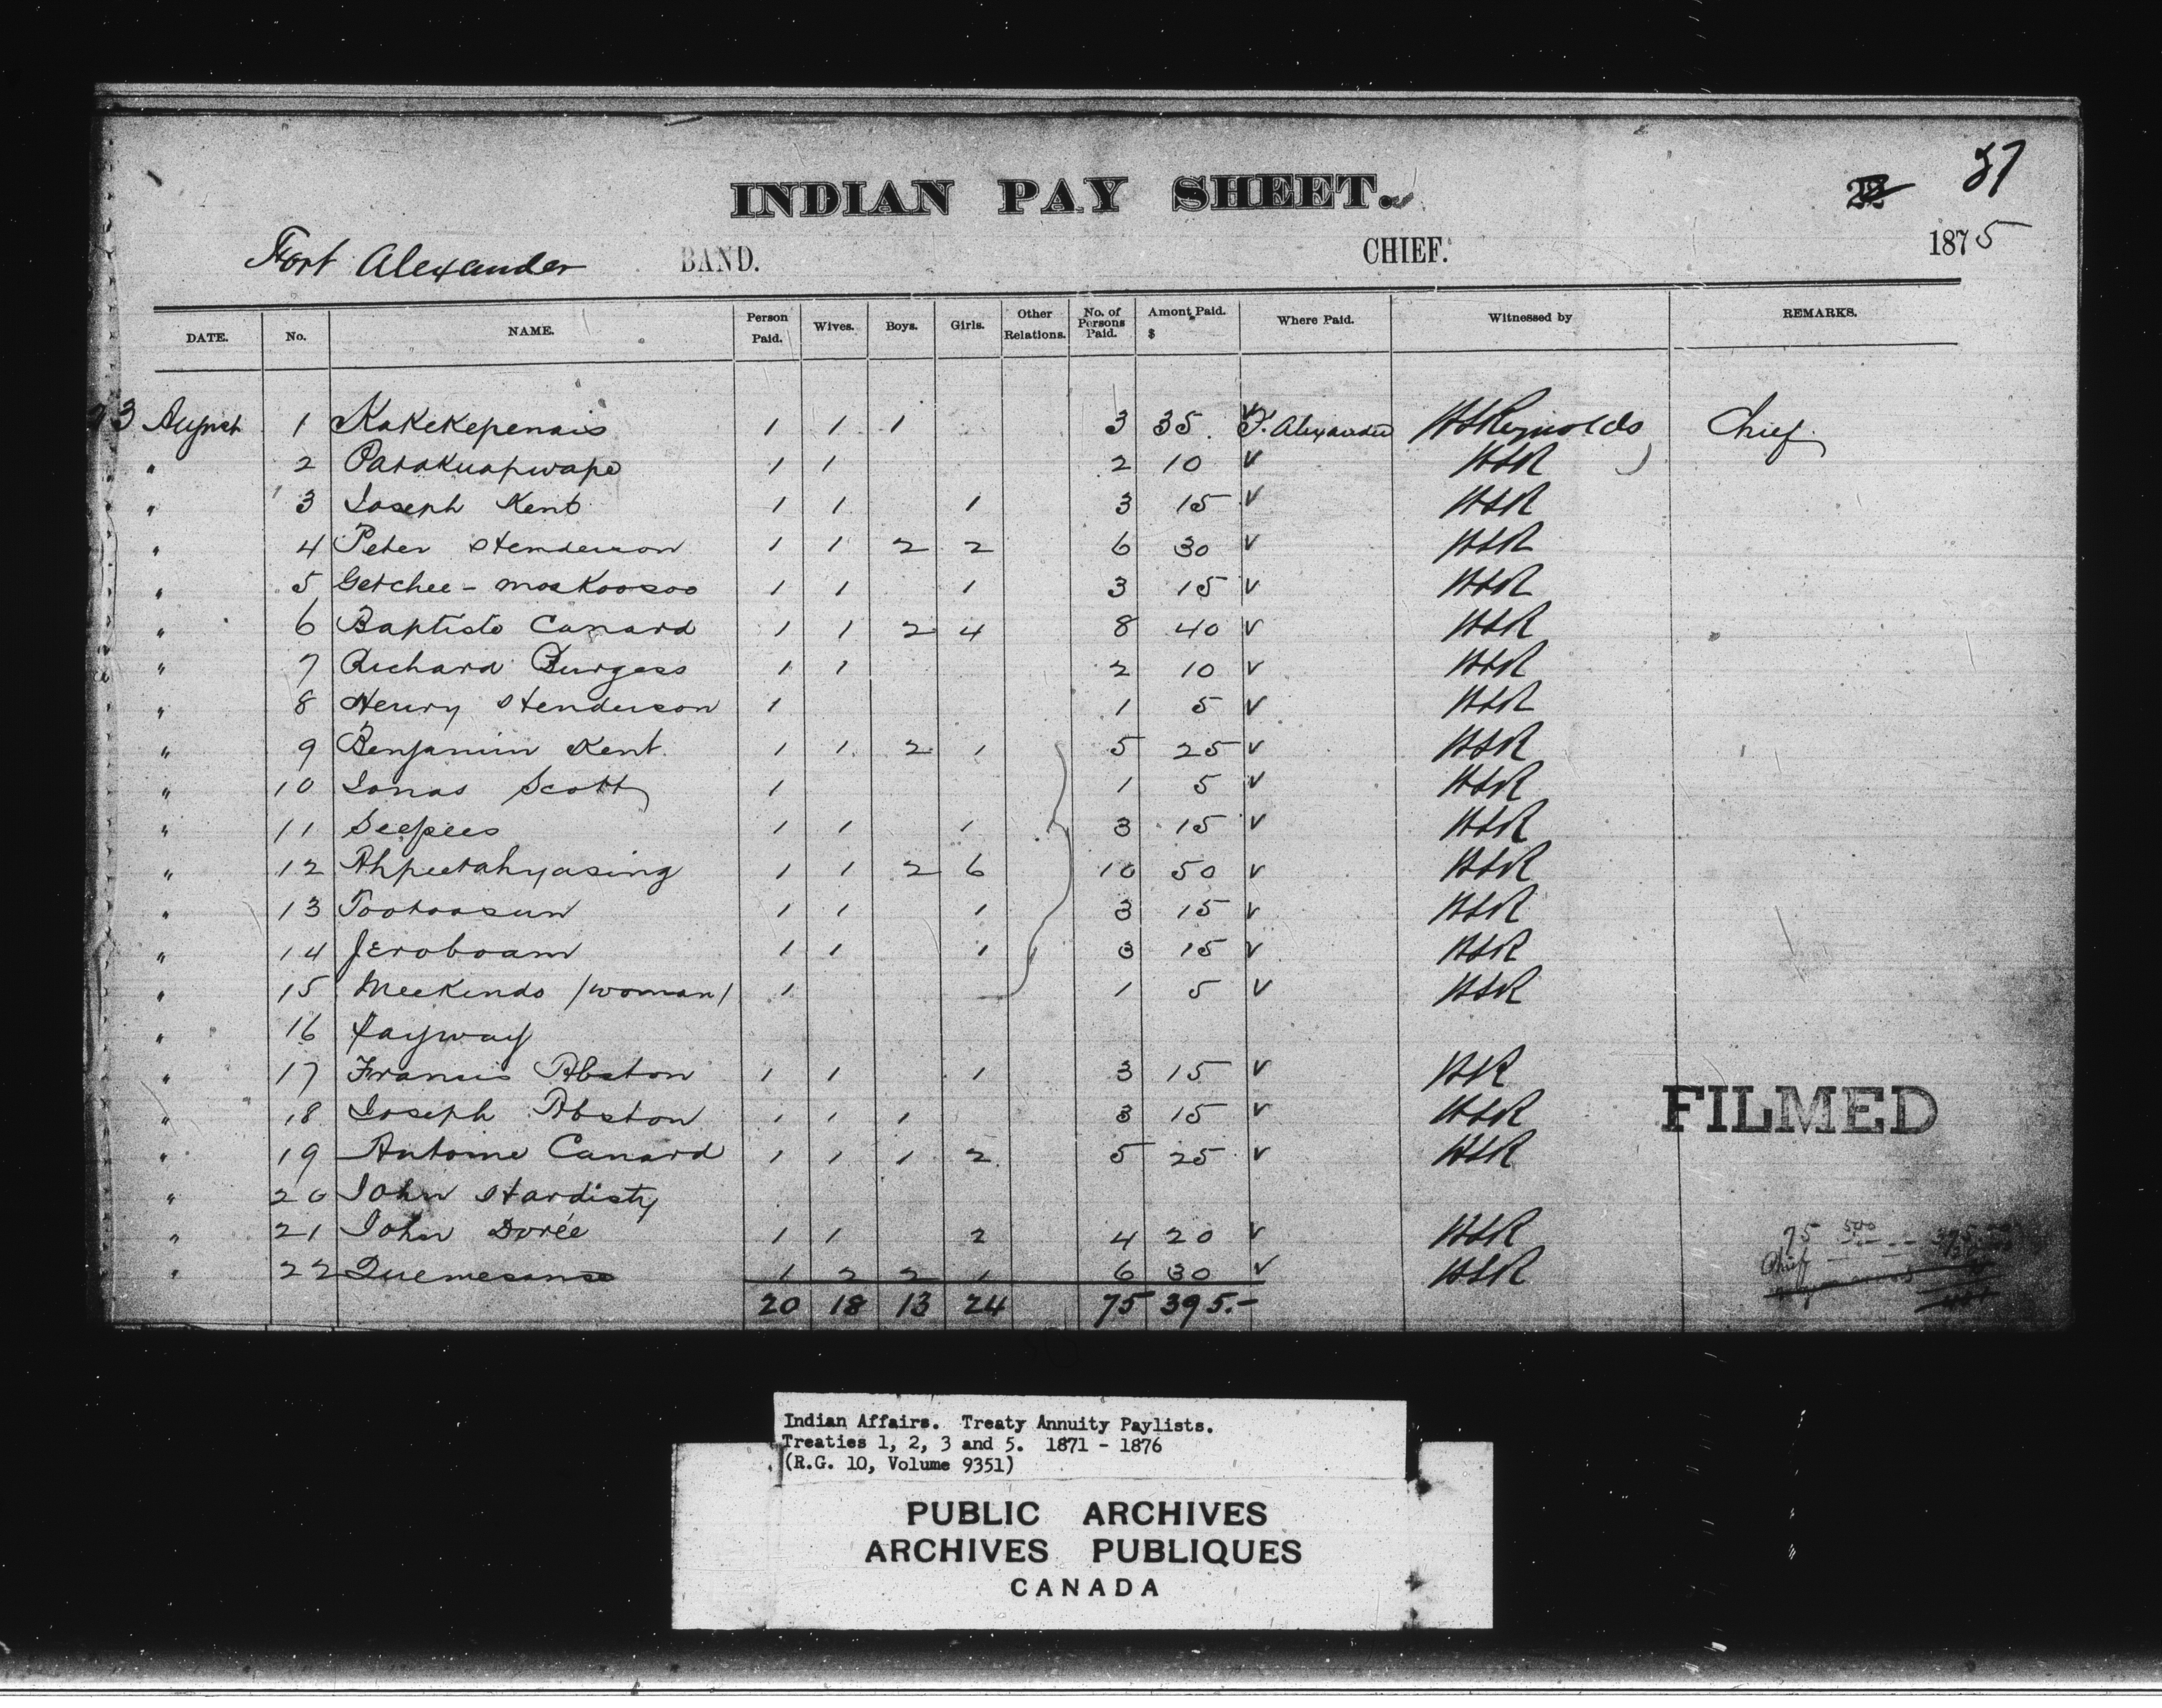 87
INDIAN PAY SHEET.
22
Fort Alexander BAND. CHIEF. 1875
DATE. No. NAME. Person Paid. Wives. Boys. Girls. Other Relations. No. of Persons Paid. Amont Paid. $ Where Paid. Witnessed by REMARKS.
23 August 1 Kakekepenais 1 1 1 3 35. F. Alexander HLReynolds Chief
" 2 Patakuapwape 1 1 2 10 v HLR
" 3 Joseph Kent 1 1 1 3 15 v HLR
" 4 Peter Henderson 1 1 2 2 6 30 v HLR
" 5 Getchee-moskoosoo 1 1 1 3 15 v HLR
" 6 Baptiste Canard 1 1 2 4 8 40 v HLR
" 7 Richard Burgess 1 1 2 10 v HLR
" 8 Henry Henderson 1 1 5 v HLR
" 9 Benjamin Kent 1 1 2 1 5 25 v HLR
" 10 Jonas Scott 1 1 5 v HLR
" 11 Seepees 1 1 1 3 15 v HLR
" 12 Ahpeetahyasing 1 1 2 6 10 50 v HLR
" 13 Tootoosun 1 1 1 3 15 v HLR
" 14 Jeroboam 1 1 1 3 15 v HLR
" 15 Meekendo /woman/ 1 1 5 v HLR
" 16 Kayway
" 17 Francis Abston 1 1 1 3 15 v HR
" 18 Joseph Abston 1 1 1 3 15 v HLR
" 19 Antoine Canard 1 1 1 2 5 25 v HLR
" 20 John Hardisty
" 21 John Dorée 1 1 2 4 20 v HLR
" 22 Quemesanse 1 2 2 1 6 30 v HLR
20 18 13 24 75 395.-
FILMED
75 500
Chief
Indian Affairs. Treaty Annuity Paylists.
Treaties 1, 2, 3 and 5. 1871 - 1876
(R.G. 10, Volume 9351)
PUBLIC ARCHIVES
ARCHIVES PUBLIQUES
CANADA